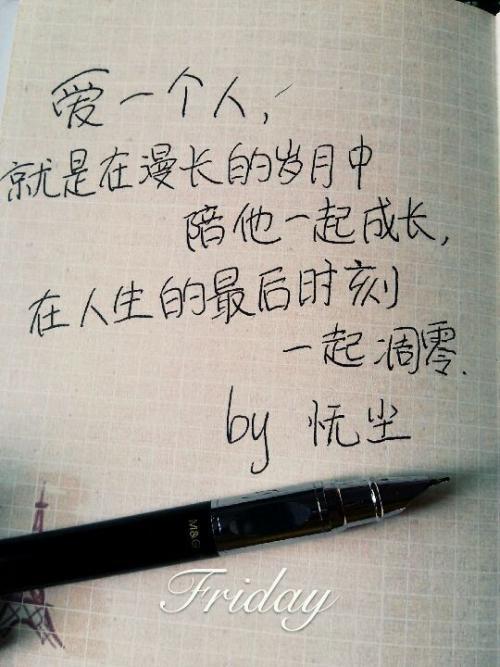 爱一个人，
就是在漫长的岁月中
陪他一起成长，
在人生的最后时刻
一起凋零.
by 忧尘
M&G
Friday